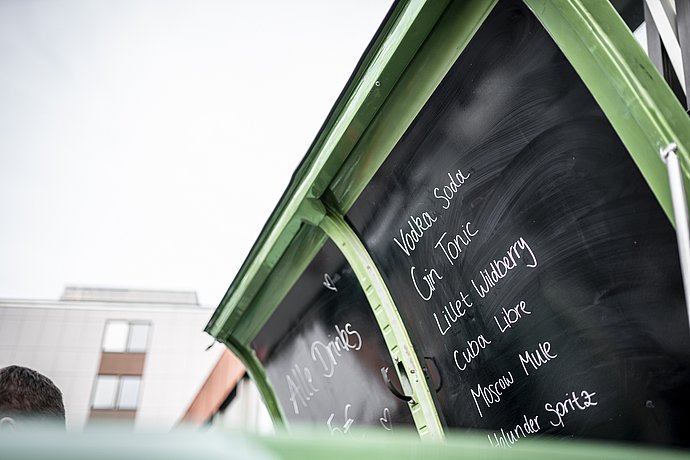 All Drinks
5€
Vodka Soda
Gin Tonic
Lillet Wildberry
Cuba Libre
Moscow Mule
Holunder Spritz